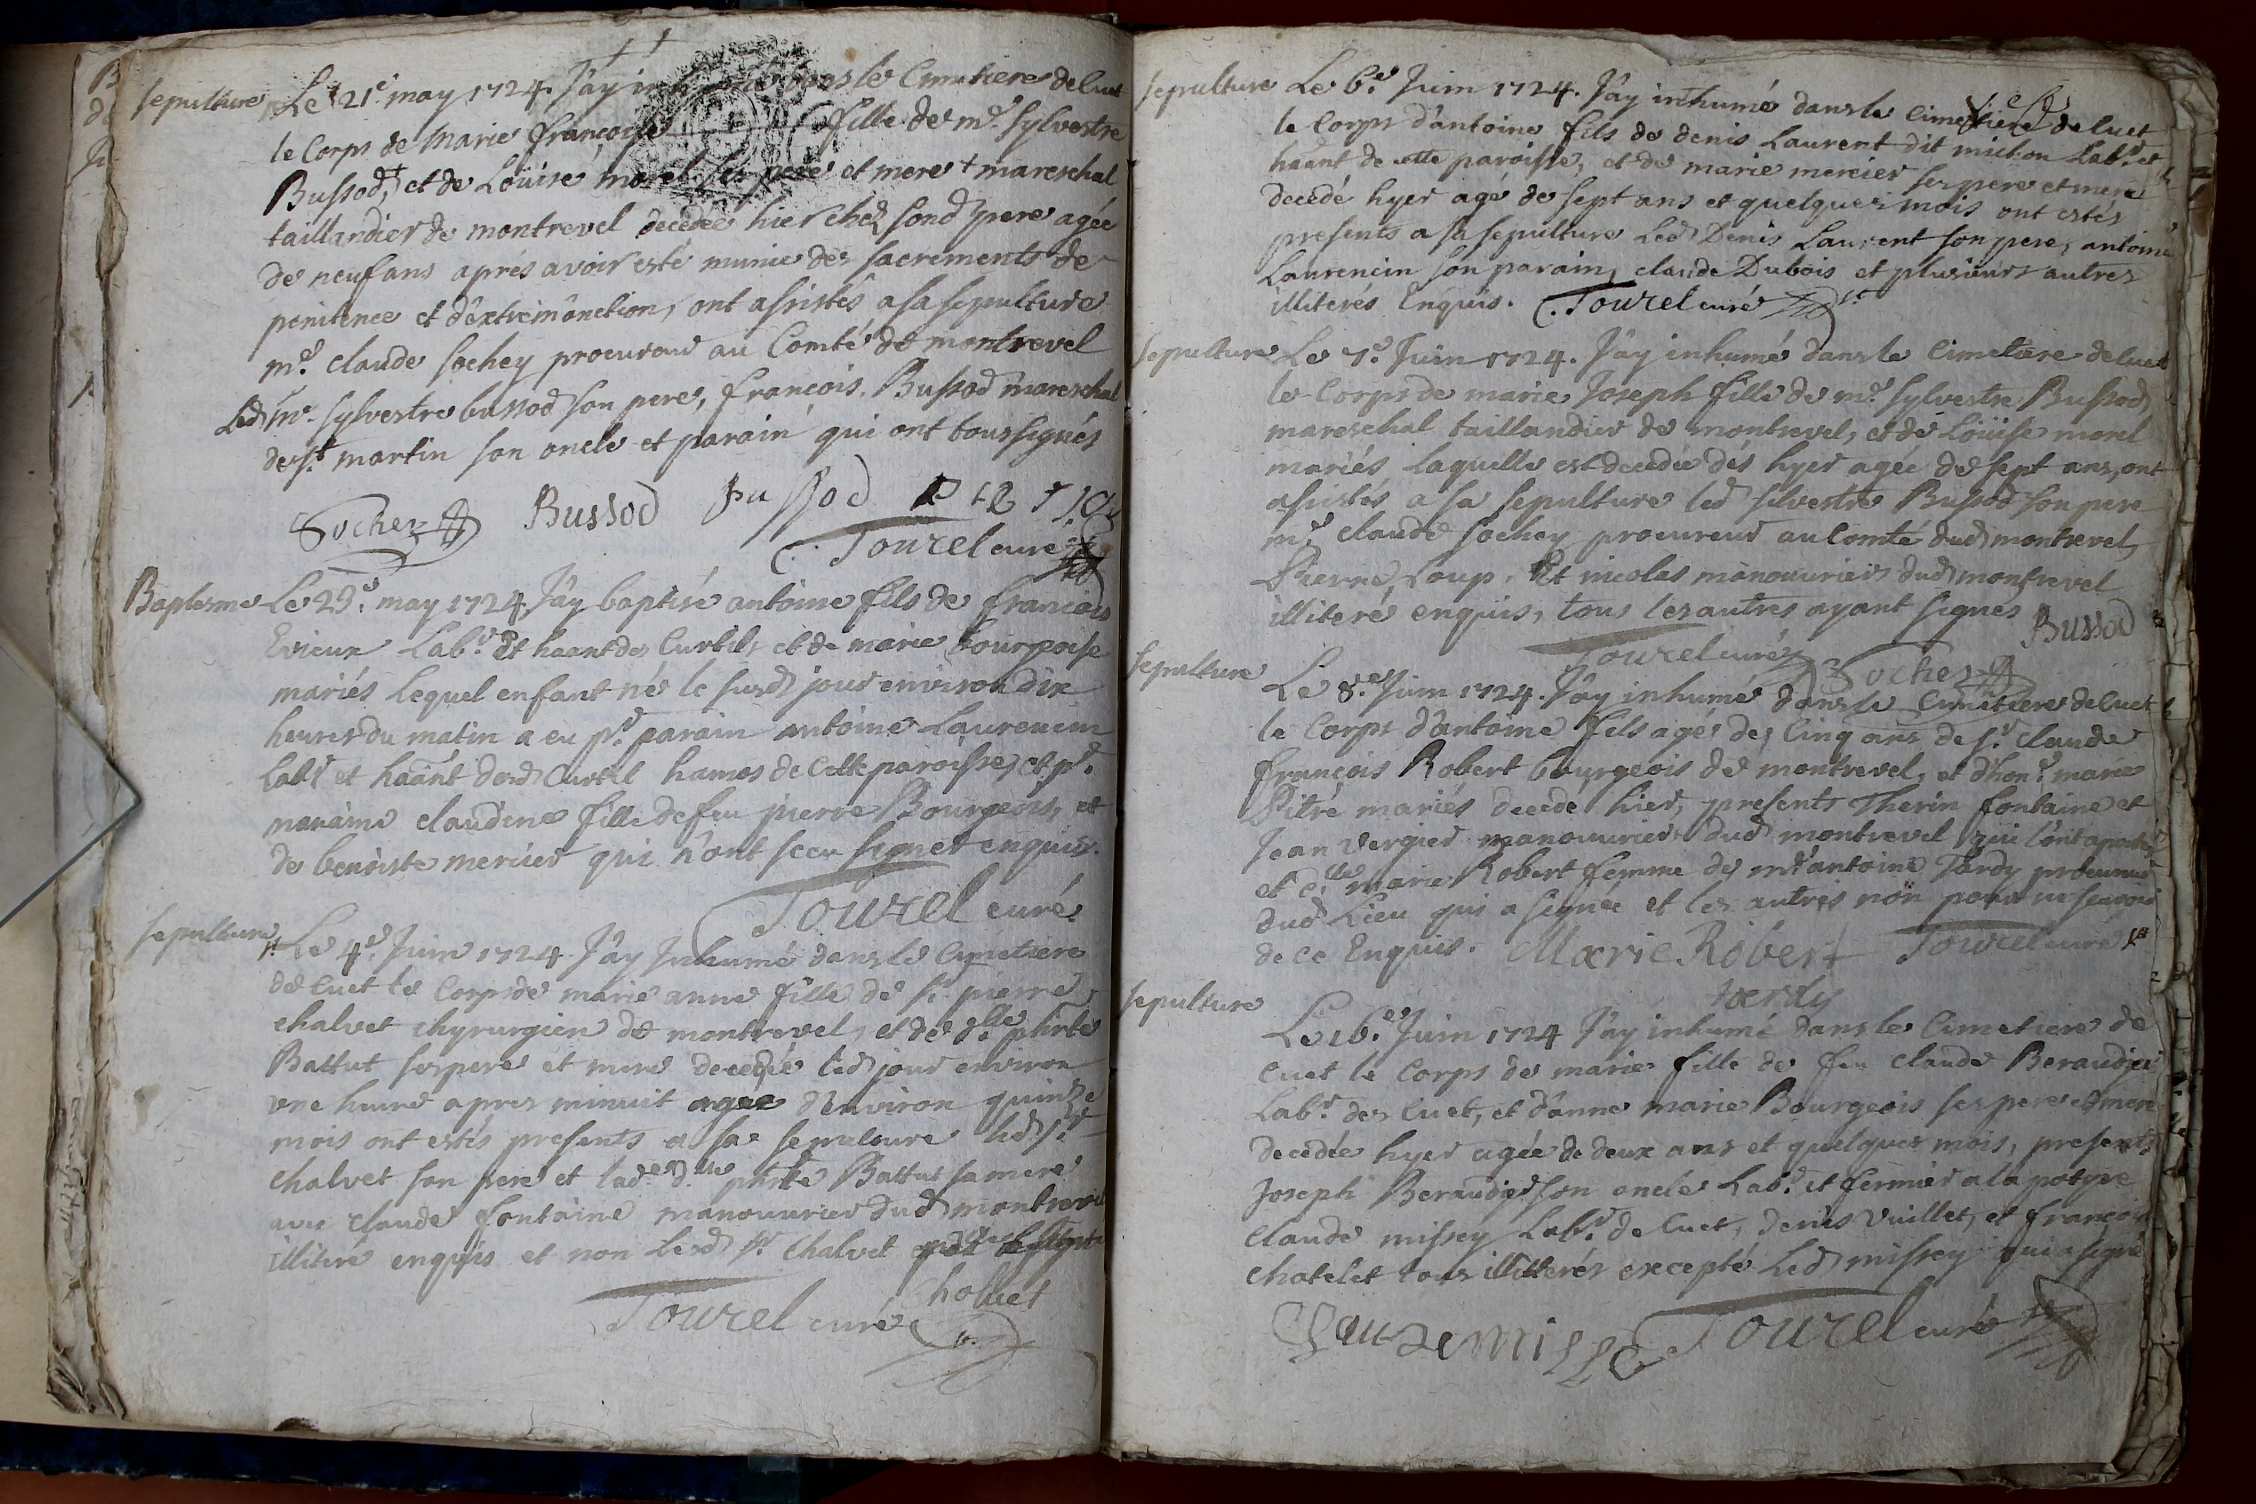 sepulture Le 21e may 1724. J'ay inhumé dans le Cimetiere de Cuet
le Corps de Marie françoise fille de me. Sylvestre
Bussod,+ et de Loüise morel ses pere et mere + mareschal
taillandier de montrevel decedée hier chez sond pere agée
de neuf ans aprés avoir esté munie des sacrements de
penitence et d'extremônction, ont assistés a sa sepulture
me. claude sochey procureur au Comté de montrevel
Led me. sylvestre bussod son pere, françois Bussod mareschal
de st. martin son oncle et parain qui ont tous signés
Sochey Bussod Bussod
Tourel curé
Baptesme Le 29e. may 1724 J'ay baptisé antoine fils de françois
Evieux Labr. et haant de Curtil, et de marie bourgeoise
mariés lequel enfant né le susd jour environ dix
heures du matin a eu pr. parain antoine Laurencin
Labr et haânt dud Curtil hameo de Cette paroisse, et pr.
maraine claudine fille de feu pierre Bourgeois, et
de benoiste mercier qui n'ont sceu signer enquis.
Tourel curé
sepulture Le 4e. Juin 1724 J'ay Inhumé dans le Cimetiere
de Cuet le Corps de marie anne fille de sr. pierre
chalvet chyrurgien de montrevel, et de dlle.
Battut ses pere et mere decedée led jour environ
une heure apres minuit agée d'environ quinze
mois ont estés presents a sa sepulture led sr
chalvet son pere et lad. dlle Battut sa mere
avec claude fontaine manouvrier dud montrevel
illiteré enquis et non led sr. chalvet
Chalvet
Tourel curé
sepulture Le 6e. Juin 1724. J'ay inhumé dans le Cimetiere de Cuet
le Corps d'antoine fils de denis Laurent dit michon Labr. et
haânt de cette paroisse, et de marie mercier ses pere et mere
decedé hyer agé de sept ans et quelques mois ont estés
presents a sa sepulture Led Denis Laurent son pere, antoine
Laurencin son parain, claude Dubois et plusieurs autres
illiterés Enquis. Tourel curé
sepulture Le 7e. Juin 1724. J'ay inhumé dans le Cimetiere de Cuet
le Corps de marie Joseph fille de me. sylvestre Bussod
mareschal taillandier de montrevel, et de Loüise morel
mariés laquelle est decedée dés hyer agée de sept ans, ont
assistés a sa sepulture led silvestre Bussod son pere
me. claude sochey procureur au Comté dud montrevel,
Pierre Loup, Et nicolas manouvriers dud montrevel
illiteré enquis, tous les autres ayant signés Bussod
Tourel curé Sochey
sepulture Le 8.e Juin 1724. J'ay inhumé dans le Cimetiere de Cuet
le Corps d'antoine fils agé de Cinq ans de sr. claude
françois Robert bourgeois de montrevel, et d'hone. marie
Pitré mariés decedé hier, presents Therin fontaine et
Jean vergier manouvriers dud montrevel qui l'ont aporté
et dlle marie Robert femme de me. antoine Tardy procureur
dud Lieu qui a signée et les autres non pour ne sçavoir
de ce Enquis. Marie Robert Tourel curé
tardy
sepulture Le 16.e Juin 1724 J'ay inhumé dans le Cimetiere de
Cuet le Corps de marie fille de feu claude Beraudier
Labr. de Cuet, et d'anne marie Bourgeois ses pere et mere
decedée hyer agée de deux ans et quelques mois, presents
Joseph Beraudier son oncle Labr. et fermier a la potyre
claude missey Labr. de Cuet, denis vuillet, et françois
chatelet tous illiterés excepté Led missey qui a signé
Tourel curé